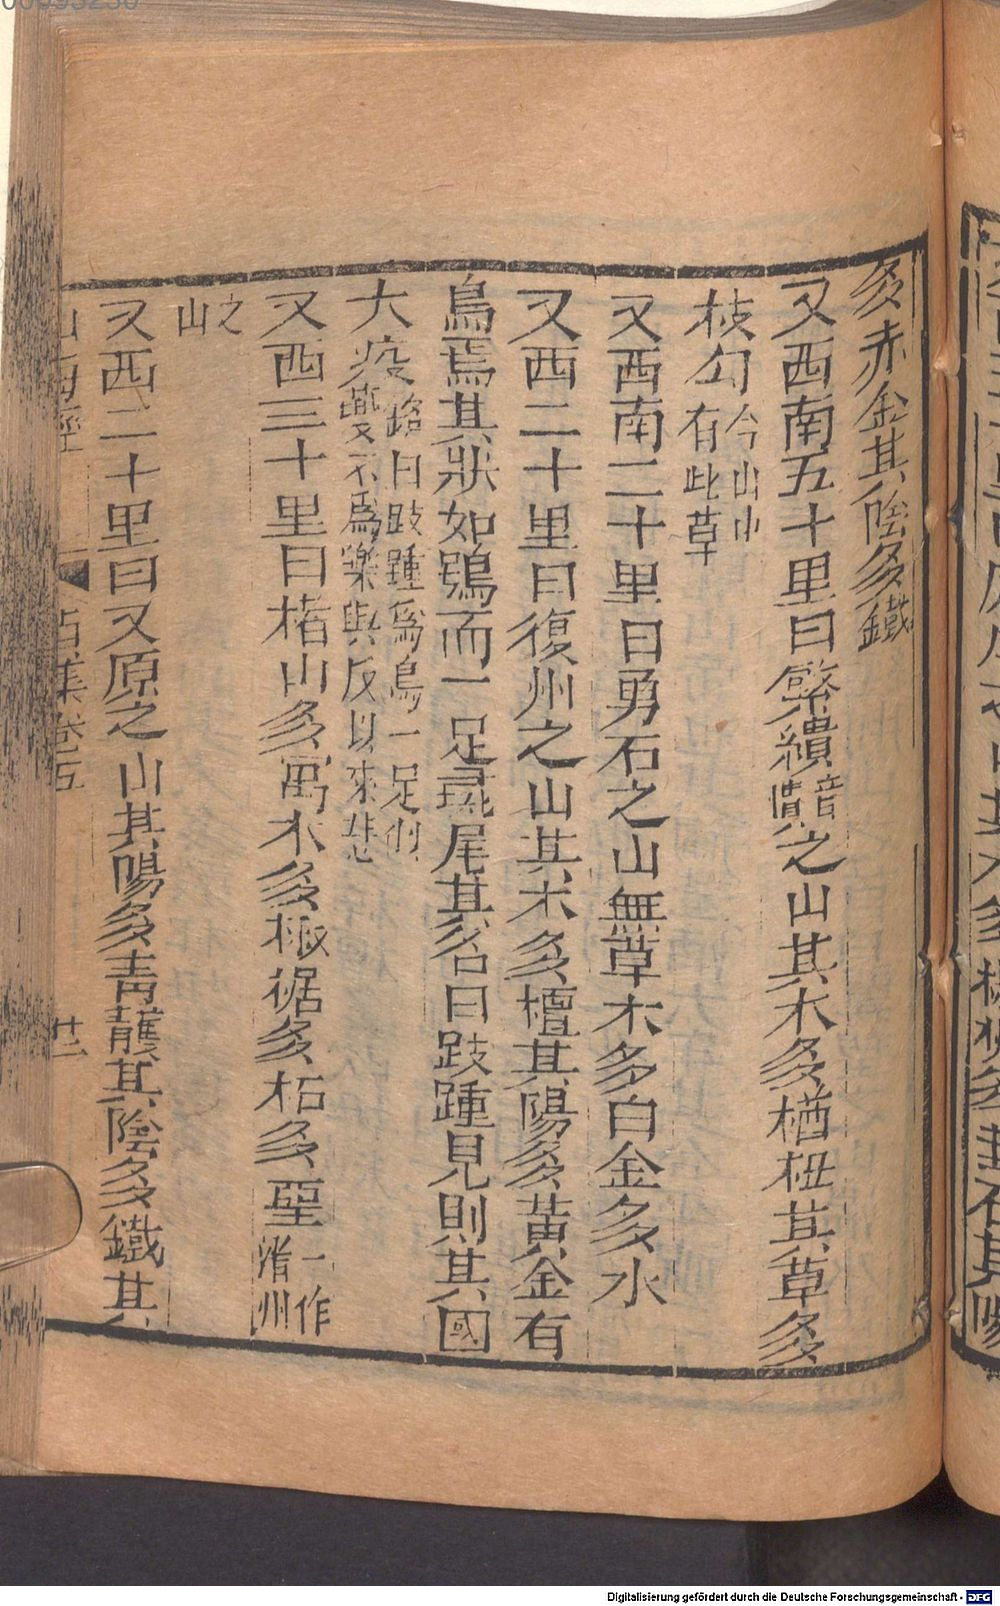 多赤金其陰多鐵
又西南五十里曰縏繢音憒之山其木多楢杻其草多
枝勾今山中有此草
又西南二十里曰勇石之山無草木多白金多水
又西二十里曰復州之山其木多檀其陽多黃金有
鳥焉其狀如鴞而一足彘尾其名曰跂踵見則其國
大疫銘曰跂踵為鳥一足似夔不為樂興反以來悲
又西三十里曰楮山多寓木多椒椐多柘多堊一作渚州
之山
又西二十里曰又原之山其陽多青雘其陰多鐵其
山海經
古集卷五
廿二
Digitalisierung gefördert durch die Deutsche Forschungsgemeinschaft - DFG